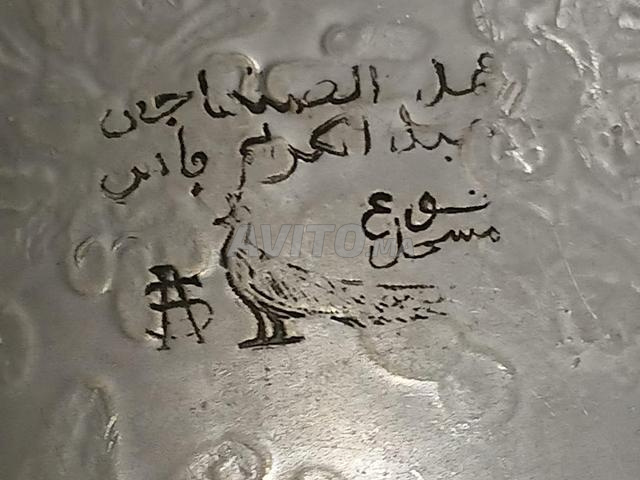 عمل الصنهاجي
عبد الكريم فاس
نوع
مسجل
AVITO.MA